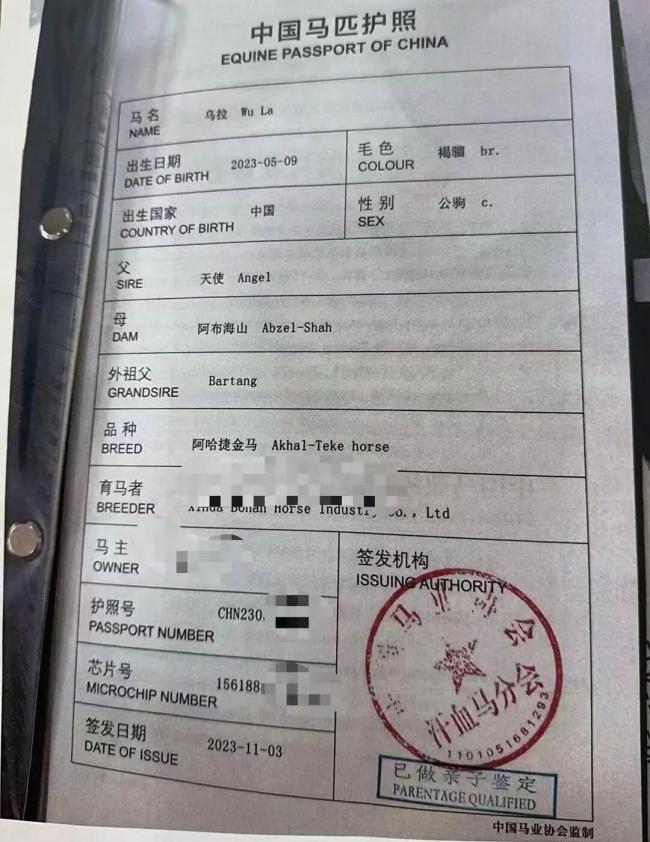 中国马匹护照
EQUINE PASSPORT OF CHINA
马名 乌拉 Wu La
NAME
出生日期 2023-05-09
DATE OF BIRTH
毛色 褐骝 br.
COLOUR
出生国家 中国
COUNTRY OF BIRTH
性别 公驹 c.
SEX
父 天使 Angel
SIRE
母 阿布海山 Abzel-Shah
DAM
外祖父 Bartang
GRANDSIRE
品种 阿哈捷金马 Akhal-Teke horse
BREED
育马者
BREEDER Horse Ltd
马主
OWNER
签发机构
ISSUING AUTHORITY
护照号 CHN230
PASSPORT NUMBER
芯片号 156188
MICROCHIP NUMBER
签发日期 2023-11-03
DATE OF ISSUE
马业协会
汗血马分会
1101051681293
已做亲子鉴定
PARENTAGE QUALIFIED
中国马业协会监制